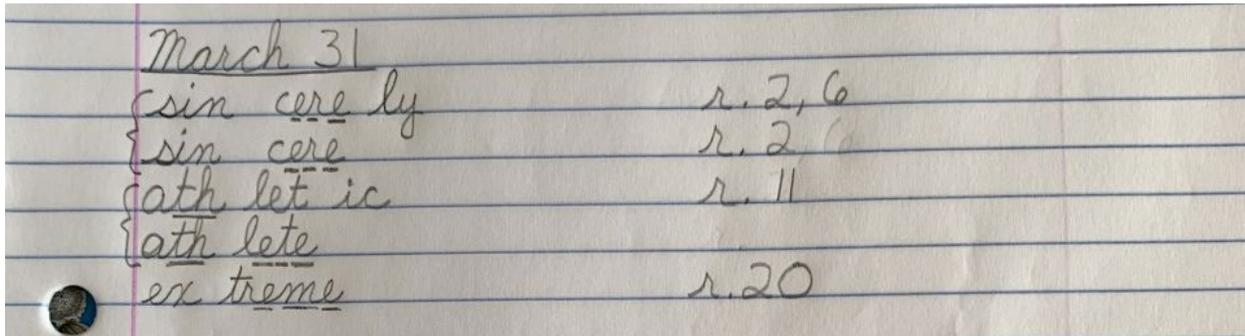 March 31
sin cere ly r. 2, 6
sin cere r. 2
ath let ic r. 11
ath lete
ex treme r. 20